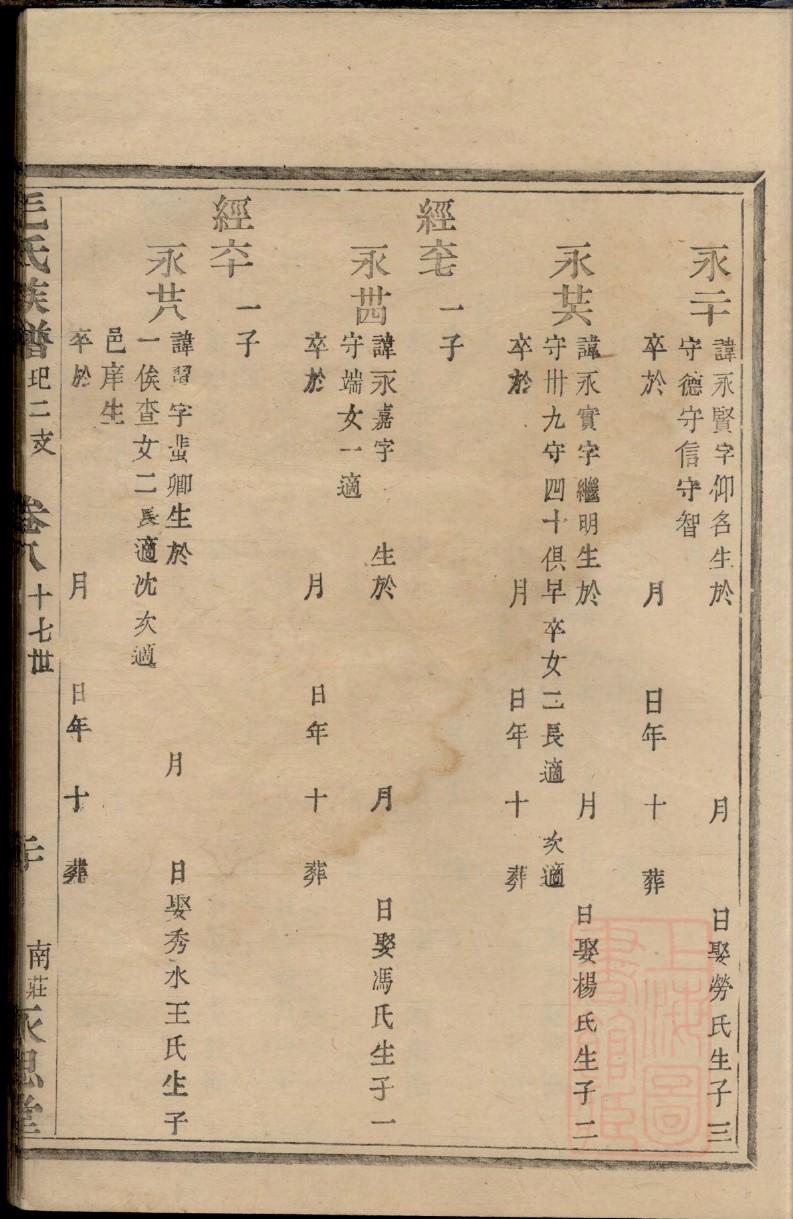 永二十
諱永賢字仰名生於 月 日娶勞氏生子三
守德守信守智
卒於 月 日年 十 葬
永廿六
諱永實字繼明生於 月 日娶楊氏生子二
守卅九守四十俱早卒女二長適 次適
卒於 月 日年 十 葬
經 一子
永廿四
諱永嘉字 生於 月 日娶馮氏生子一
守端女一適
卒於 月 日年 十 葬
經六十 一子
永廿八
諱習字蜚卿生於 月 日娶秀水王氏生子
一俟查女二長適沈次適
邑庠生
卒於 月 日年 十 葬
毛氏族譜 玘二支 卷八 十七世 二十 南莊永思堂
上海圖書館臧